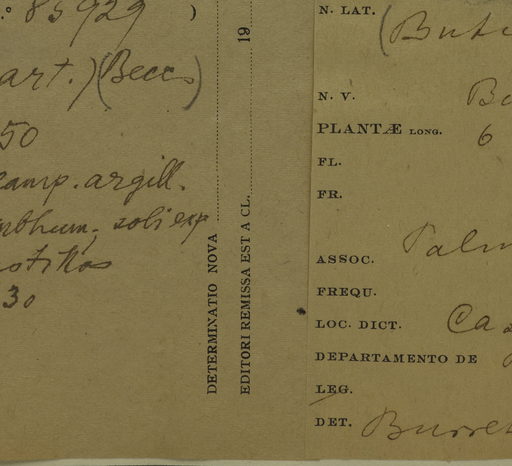 .º 85929 )
art.) (Becc)
50
camp. argill.
soli exp
30
DETERMINATIO NOVA
19
EDITORI REMISSA EST A CL.
N. LAT.
(Buti
N. V. Bu
PLANTÆ LONG. 6
FL.
FR.
ASSOC. Palm
FREQU.
LOC. DICT. Ca
DEPARTAMENTO DE
LEG.
DET. Burret